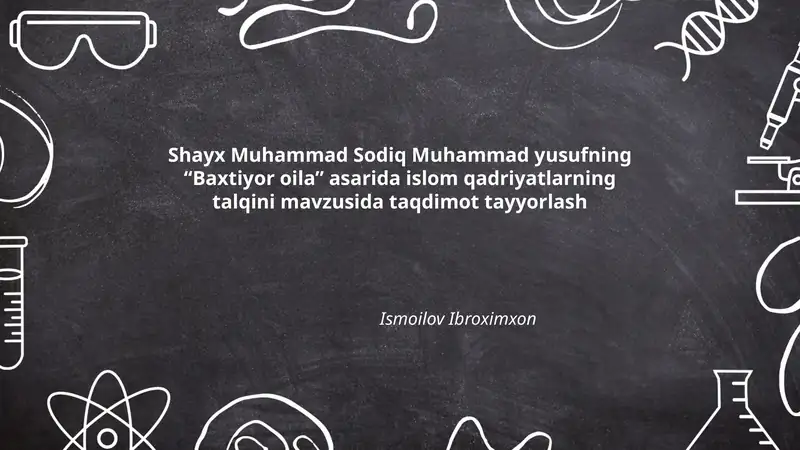 Shayx Muhammad Sodiq Muhammad yusufning
“Baxtiyor oila” asarida islom qadriyatlarning
talqini mavzusida taqdimot tayyorlash
Ismoilov Ibroximxon